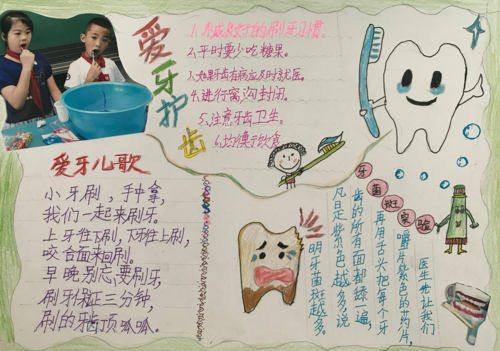 爱牙护齿
1.养成良好的刷牙习惯。
2.平时要少吃糖果。
3.如果牙齿有病应及时就医。
4.进行窝沟封闭。
5.注意牙齿卫生。
6.均衡饮食
爱牙儿歌
小牙刷,手中拿,
我们一起来刷牙。
上牙往下刷,下牙往上刷,
咬合面来回刷。
早晚别忘要刷牙,
刷牙保证三分钟,
刷的牙齿顶呱呱。
牙菌斑实验
医生她让我们
嚼片紫色的药片,
再用舌头把每个牙
齿的所有面都舔一遍,
凡是紫色越多,说
明牙菌斑越多。